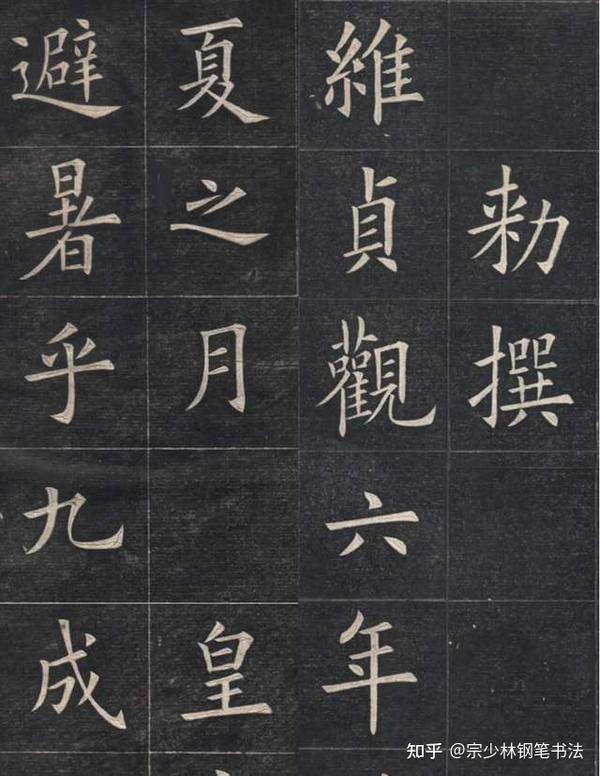 勑撰
維貞觀六年
夏之月皇
避暑乎九成
知乎 @宗少林钢笔书法